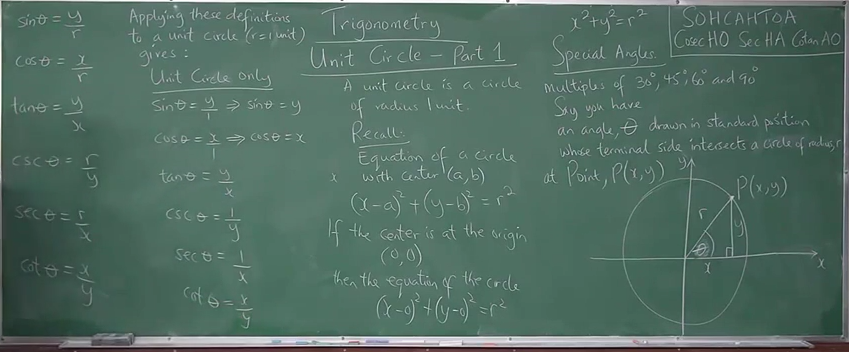 sinθ = y/r
cosθ = x/r
tanθ = y/x
cscθ = r/y
secθ = r/x
cotθ = x/y
Applying these definitions
to a unit circle (r=1 unit)
gives:
Unit Circle only
sinθ = y/1 ⇒ sinθ = y
cosθ = x/1 ⇒ cosθ = x
tanθ = y/x
cscθ = 1/y
secθ = 1/x
cotθ = x/y
Trigonometry
Unit Circle – Part 1
A unit circle is a circle
of radius 1 unit.
Recall:
Equation of a circle
with center (a,b)
x
(x-a)² + (y-b)² = r²
If the center is at the origin
(0,0)
then the equation of the circle
(x-0)² + (y-0)² = r²
x² + y² = r²
SOHCAHTOA
CosecHO SecHA CotanAO
Special Angles:
multiples of 30°, 45°, 60° and 90°
Say you have
an angle, θ drawn in standard position
whose terminal side intersects a circle of radius, r
at Point, P(x,y)
y
P(x,y)
r
y
θ
x
x